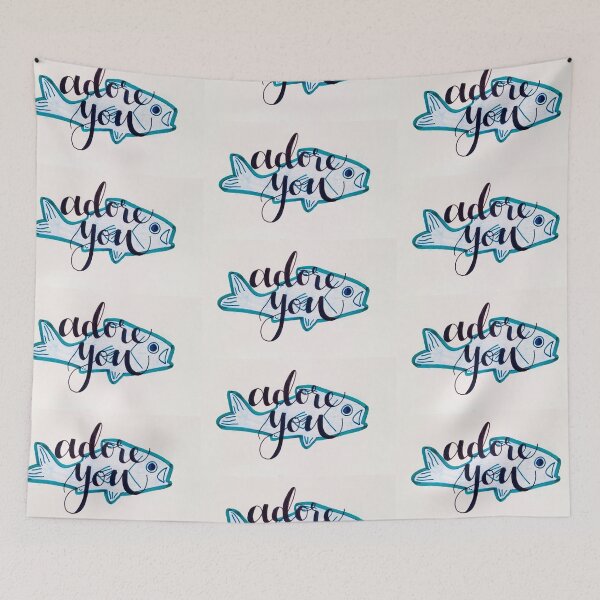 adore
you
adore
you
adore
you
adore
you
adore
you
adore
you
adore
you
adore
you
adore
you
adore
you
adore
you
adore